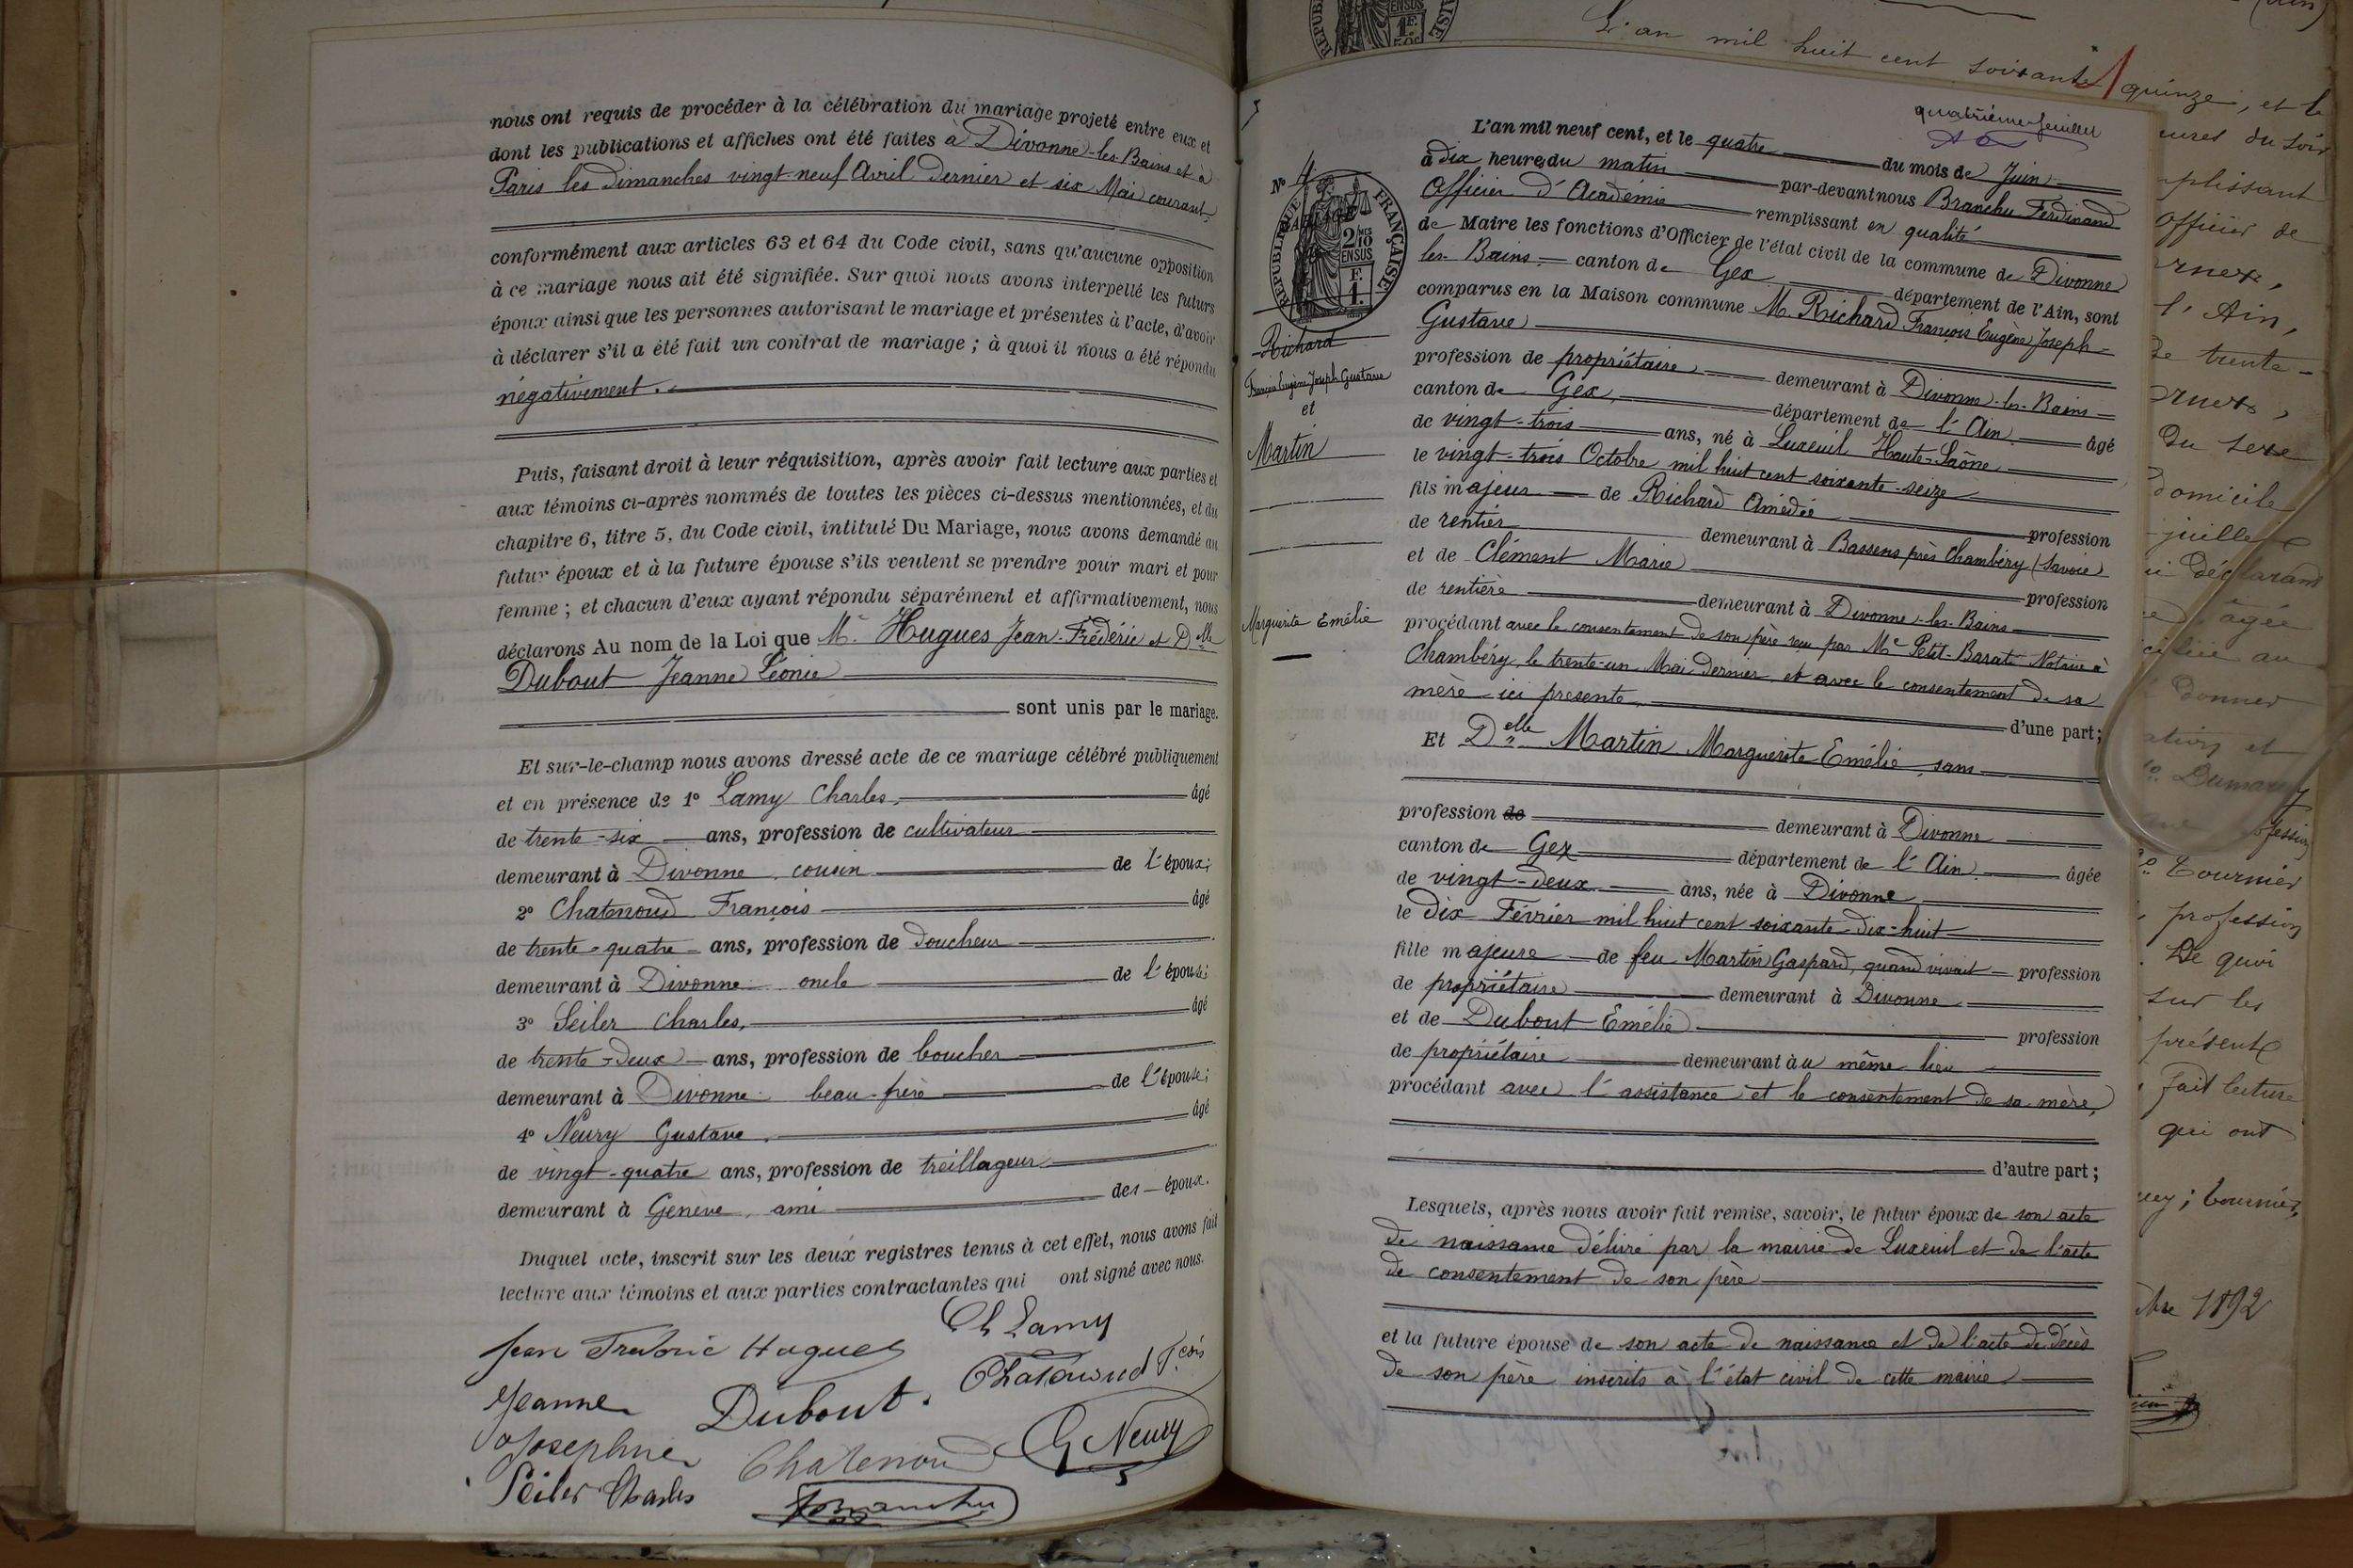 nous ont requis de procéder à la célébration du mariage projeté entre eux et
dont les publications et affiches ont été faites à Divonne-les-Bains et à
Paris les dimanches vingt-neuf Avril dernier et six Mai courant.
conformément aux articles 63 et 64 du Code civil, sans qu'aucune opposition
à ce mariage nous ait été signifiée. Sur quoi nous avons interpellé les futurs
époux ainsi que les personnes autorisant le mariage et présentes à l'acte, d'avoir
à déclarer s'il a été fait un contrat de mariage ; à quoi il nous a été répondu
négativement.
Puis, faisant droit à leur réquisition, après avoir fait lecture aux parties et
aux témoins ci-après nommés de toutes les pièces ci-dessus mentionnées, et du
chapitre 6, titre 5, du Code civil, intitulé Du Mariage, nous avons demandé au
futur époux et à la future épouse s'ils veulent se prendre pour mari et pour
femme ; et chacun d'eux ayant répondu séparément et affirmativement, nous
déclarons Au nom de la Loi que Mr. Hugues Jean-Frédéric et Delle
Dubout Jeanne Léonie
sont unis par le mariage.
Et sur-le-champ nous avons dressé acte de ce mariage célébré publiquement
et en présence de 1° Lamy Charles, âgé
de trente-six ans, profession de cultivateur
demeurant à Divonne, cousin de l'époux;
2° Chatenoud François âgé
de trente-quatre ans, profession de doucheur
demeurant à Divonne oncle de l'épouse;
3° Seiler Charles, âgé
de trente-deux ans, profession de boucher
demeurant à Divonne beau-frère de l'épouse;
4° Neury Gustave, âgé
de vingt-quatre ans, profession de treillageur
demeurant à Genève, ami des époux.
Duquel acte, inscrit sur les deux registres tenus à cet effet, nous avons fait
lecture aux témoins et aux parties contractantes qui ont signé avec nous.
Ch Lamy
Jean Frederic Hugues
Chatenoud Fçois
Jeanne Dubout.
G Neury
Josephine Chatenoud
Seiler Charles
Branchu
L'an mil huit cent soixante quinze, et le
quatrième feuillet
L'an mil neuf cent, et le quatre du mois de Juin
à dix heures du matin par-devant nous Branchu Ferdinand
Officier d'Académie remplissant en qualité
de Maire les fonctions d'Officier de l'état civil de la commune de Divonne
les-Bains canton de Gex département de l'Ain, sont
comparus en la Maison commune M. Richard François Eugène Joseph
Gustave
profession de propriétaire demeurant à Divonne-les-Bains
canton de Gex, département de l'Ain âgé
de vingt-trois ans, né à Luxeuil Haute-Saône
le vingt-trois Octobre mil huit cent soixante-seize
fils majeur de Richard Amédée profession
de rentier demeurant à Bassens près Chambéry (Savoie)
et de Clément Marie profession
de rentière demeurant à Divonne-les-Bains
procédant avec le consentement de son père reçu par Me Petit-Barat Notaire à
Chambéry, le trente-un Mai dernier et avec le consentement de sa
mère ici présente, d'une part;
Et Delle Martin Marguerite Emélie, sans
profession de demeurant à Divonne
canton de Gex département de l'Ain âgée
de vingt-deux ans, née à Divonne
le dix Février mil huit cent soixante-dix-huit
fille majeure de feu Martin Gaspard, quand vivait profession
de propriétaire demeurant à Divonne
et de Dubout Emélie profession
de propriétaire demeurant au même lieu
procédant avec l'assistance et le consentement de sa mère,
d'autre part ;
Lesquels, après nous avoir fait remise, savoir, le futur époux de son acte
de naissance délivré par la mairie de Luxeuil et de l'acte
de consentement de son père
et la future épouse de son acte de naissance et de l'acte de décès
de son père inscrits à l'état civil de cette mairie
N° 4
MARIAGE
RÉPUBLIQUE FRANÇAISE
2/10 EN SUS
F. 1.
Richard
François Eugène Joseph Gustave
et
Martin
Marguerite Emélie
ures du soir
plissant
Officier de
l'Ain,
de trente-
du sexe
domicile
juillet
déclarant
âgée
au
donner
et
Tournier
profession
De quoi
sur les
présent
fait lecture
qui ont
Tournier,
1892